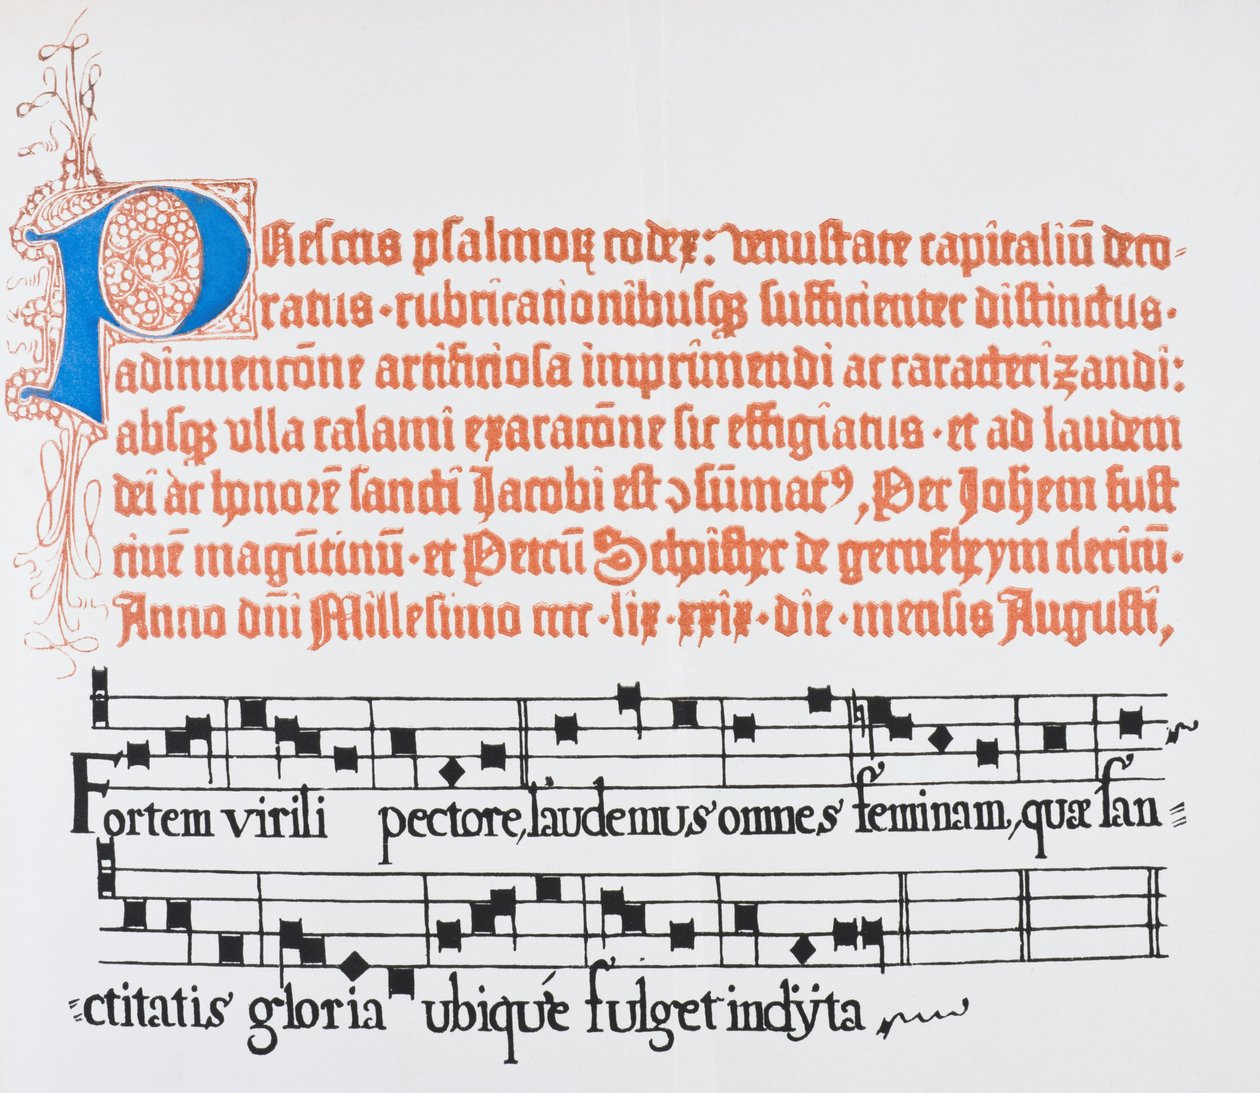 Presens psalmoꝝ codex: venustate capitaliū deco⸗
ratus · rubricationibusqꝫ sufficienter distinctus ·
adinuencōne artificiosa imprimendi ac caracterizandi:
absqꝫ vlla calami exaracōne sic effigiatus · et ad laudem
dei ac honorē sancti Jacobi est ↄsūmatꝰ, Per Johem fust
ciuē magūtinū · et Petrū Schoiffher de gernssheym clericū ·
Anno dn̄i Millesimo cccc · lix · xxix · die · mensis Augusti,
Fortem virili pectore, laudemus omnes feminam, quæ san⸗
⸗ctitatis gloria ubiqué fulget indÿta